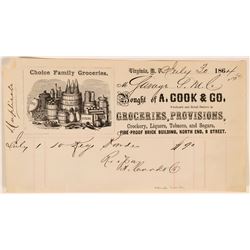 Choice Family Groceries.
Virginia, N. T. July 20 1864
Bought of A. COOK & CO.
Wholesale and Retail Dealers in
GROCERIES, PROVISIONS,
Crockery, Liquors, Tobacco, and Segars,
FIRE-PROOF BRICK BUILDING, NORTH END, B STREET.
July 1 10 Kegs Powder $90
A. Cook & Co